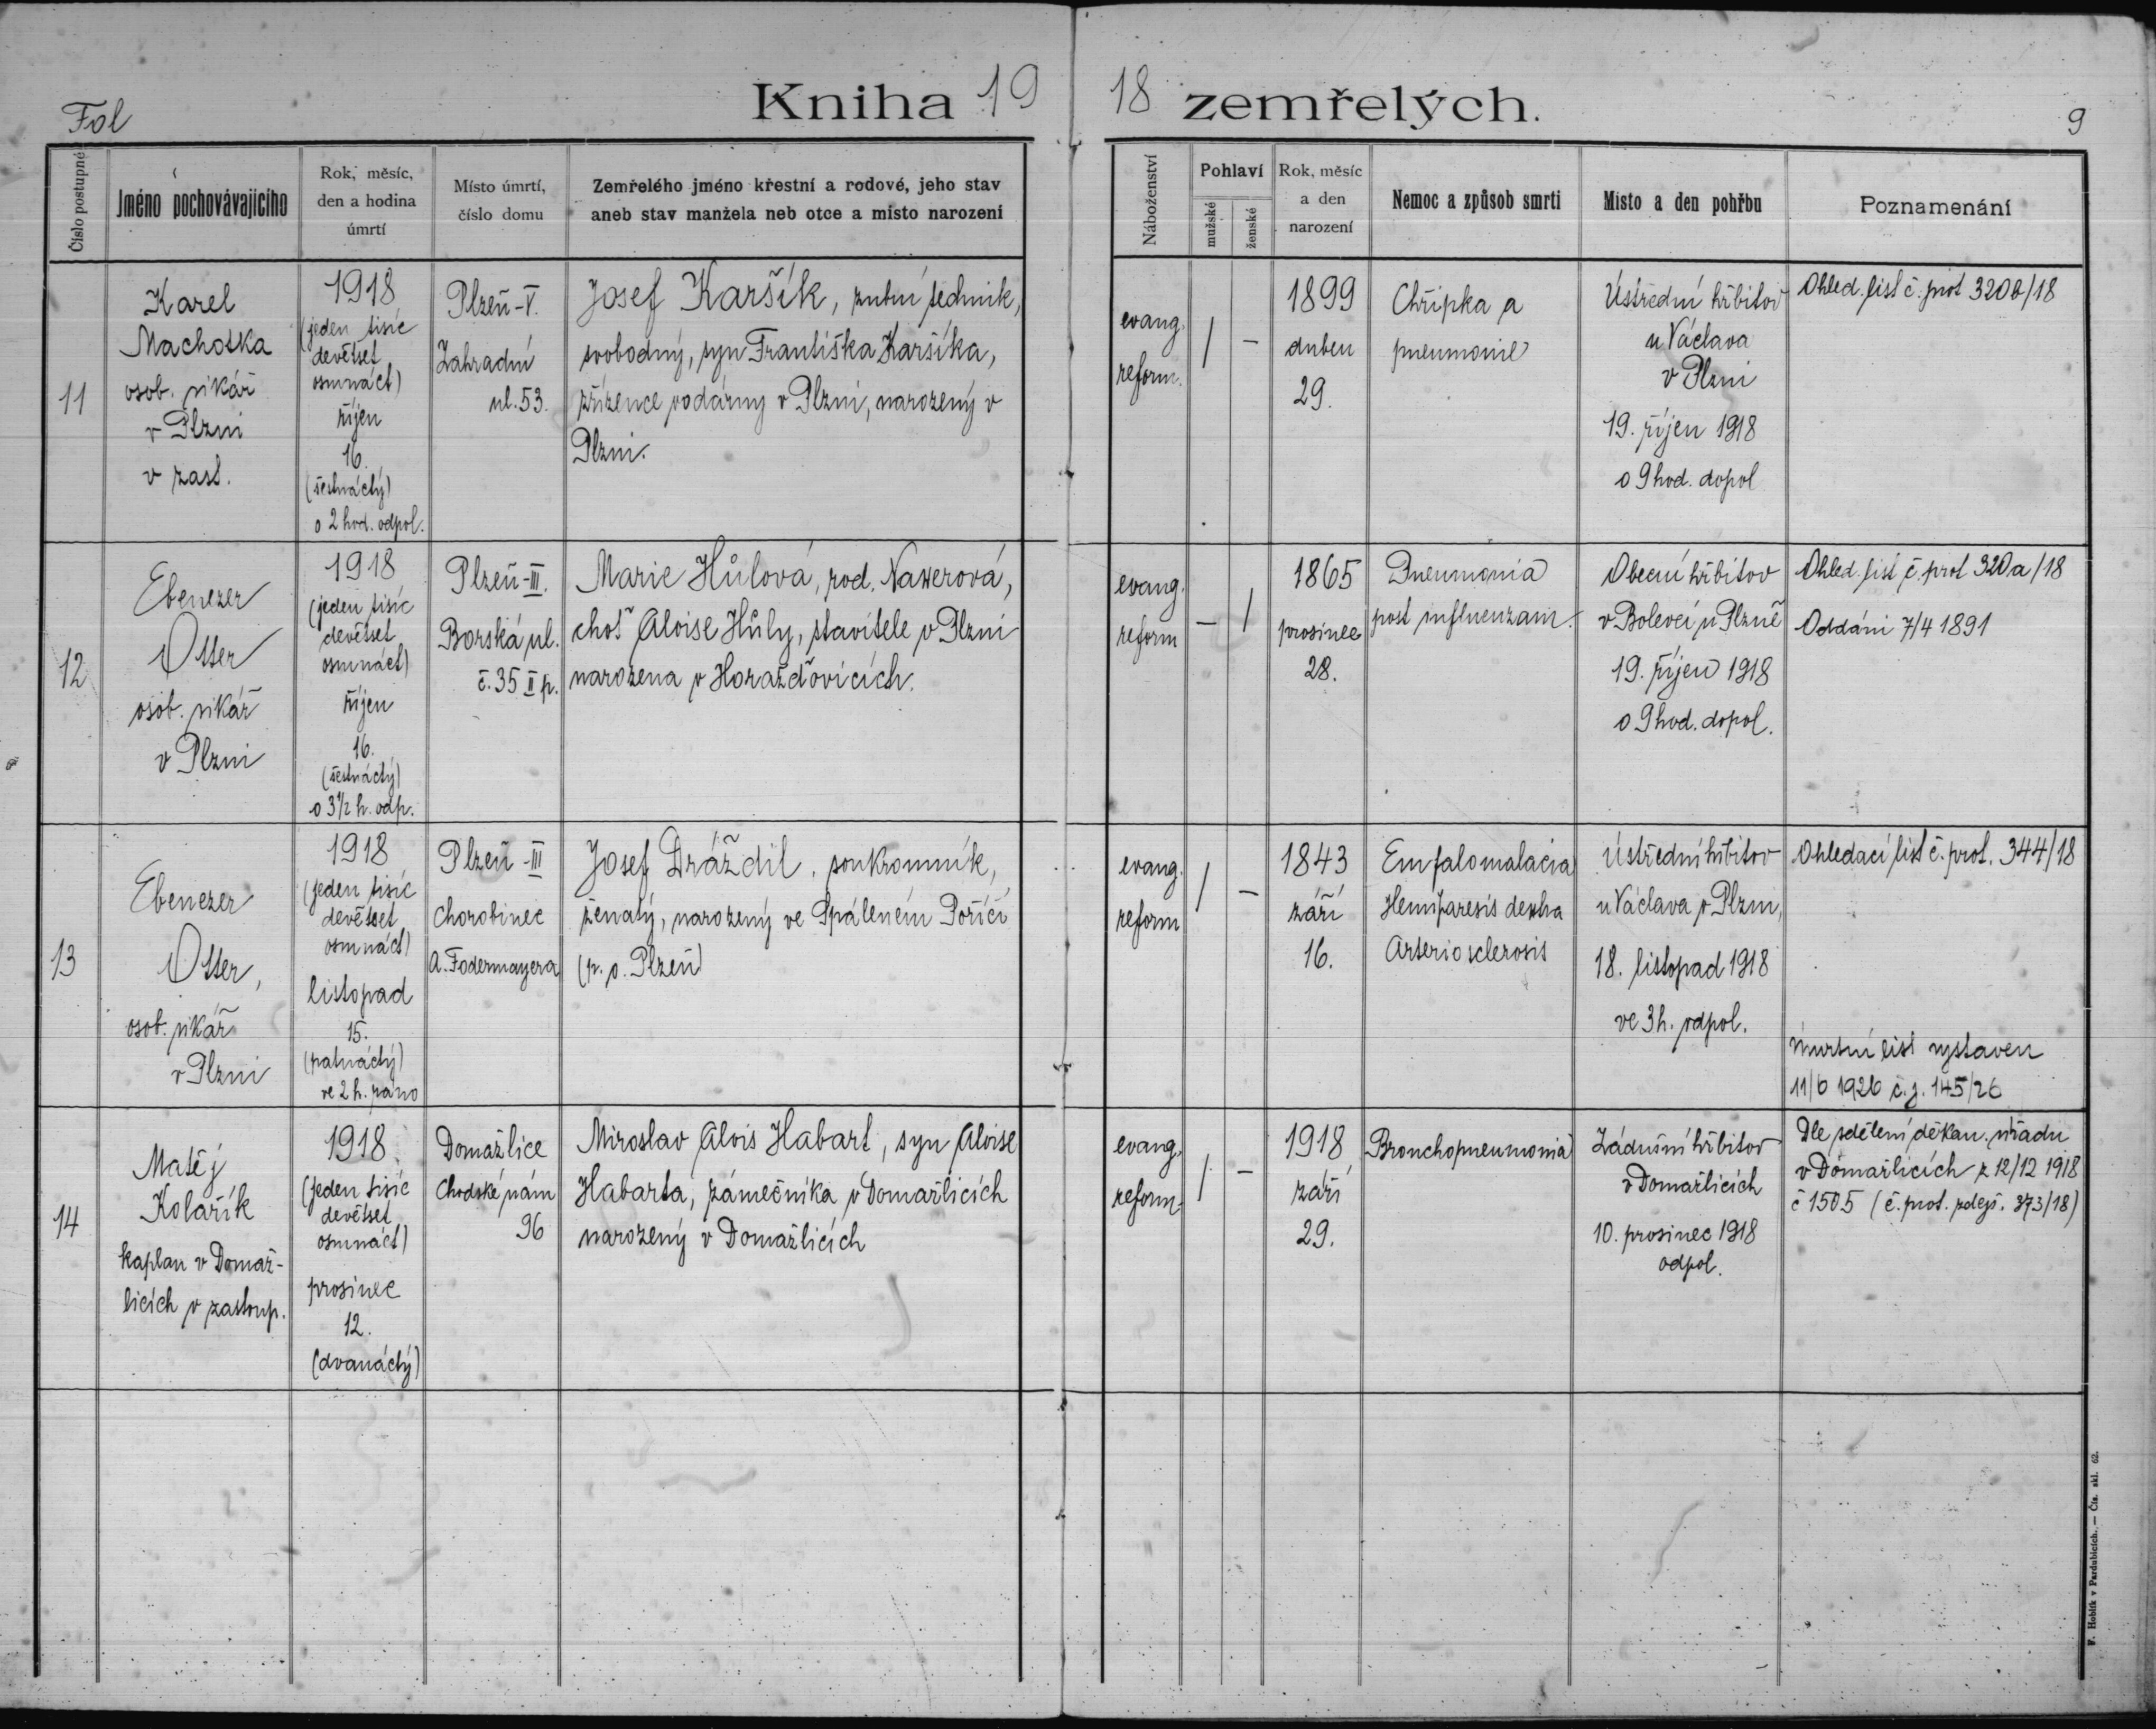 Fol
Kniha 19 18 zemřelých.
9
Číslo postupné
Jméno pochovávajícího
Rok, měsíc,
den a hodina
úmrtí
Místo úmrtí,
číslo domu
Zemřelého jméno křestní a rodové, jeho stav
aneb stav manžela neb otce a místo narození
Náboženství
Pohlaví
mužské
ženské
Rok, měsíc
a den
narození
Nemoc a způsob smrti
Místo a den pohřbu
Poznamenání
11
Karel
Machotka
osob. vikář
v Plzni
v zast.
1918
(jeden tisíc
devětset
osmnáct)
říjen
16.
(šestnáctý)
o 2 hod. odpol.
Plzeň-V.
Zahradní
ul. 53.
Josef Karšík, zubní technik,
svobodný, syn Františka Karšíka,
zřízence vodárny v Plzni, narozený v
Plzni.
evang.
reform.
/ –
1899
duben
29.
Chřipka a
pneumonie
Ústřední hřbitov
u Václava
v Plzni
19. říjen 1918
o 9 hod. dopol
Ohled. list č. prot 320b/18
12
Ebenezer
Otter
osob. vikář
v Plzni
1918
(jeden tisíc
devětset
osmnáct)
říjen
16.
(šestnáctý)
o 3½ h. odp.
Plzeň-III.
Borská ul.
č. 35 II p.
Marie Hůlová, rod. Naxerová,
choť Aloise Hůly, stavitele v Plzni
narozena v Horažďovicích.
evang.
reform
– /
1865
prosinec
28.
Pneumonia
post influenzam.
Obecní hřbitov
v Bolevci u Plzně
19. říjen 1918
o 9 hod. dopol.
Ohled. list č. prot 320a/18
Oddáni 7/4 1891
13
Ebenezer
Otter,
osob. vikář
v Plzni
1918
(jeden tisíc
devětset
osmnáct)
listopad
15.
(patnáctý)
ve 2 h. ráno
Plzeň-III
Chorobinec
A. Fodermayera
Josef Dráždil, soukromník,
ženatý, narozený ve Spáleném Poříčí
(p. o. Plzeň)
evang.
reform
/ –
1843
září
16.
Emfalomalacia
Hemiparesis dextra
Arteriosclerosis
Ústřední hřbitov
u Václava v Plzni,
18. listopad 1918
ve 3 h. odpol.
Ohledací list č. prot. 344/18
úmrtní list vystaven
11/6 1926 č.j. 145/26
14
Matěj
Kolařík
kaplan v Domaž-
licích v zastoup.
1918
(jeden tisíc
devětset
osmnáct)
prosinec
12.
(dvanáctý)
Domažlice
Chodské nám
96
Miroslav Alois Habart, syn Aloise
Habarta, zámečníka v Domažlicích
narozený v Domažlicích
evang.
reform.
/ –
1918
září
29.
Bronchopneumonia
Zádušní hřbitov
v Domažlicích
10. prosinec 1918
odpol.
Dle sdělení děkan. úřadu
v Domažlicích z 12/12 1918
č 1505 (č. prot. zdejš. 373/18)
F. Hoblík v Pardubicích. — Čís. skl. 62.